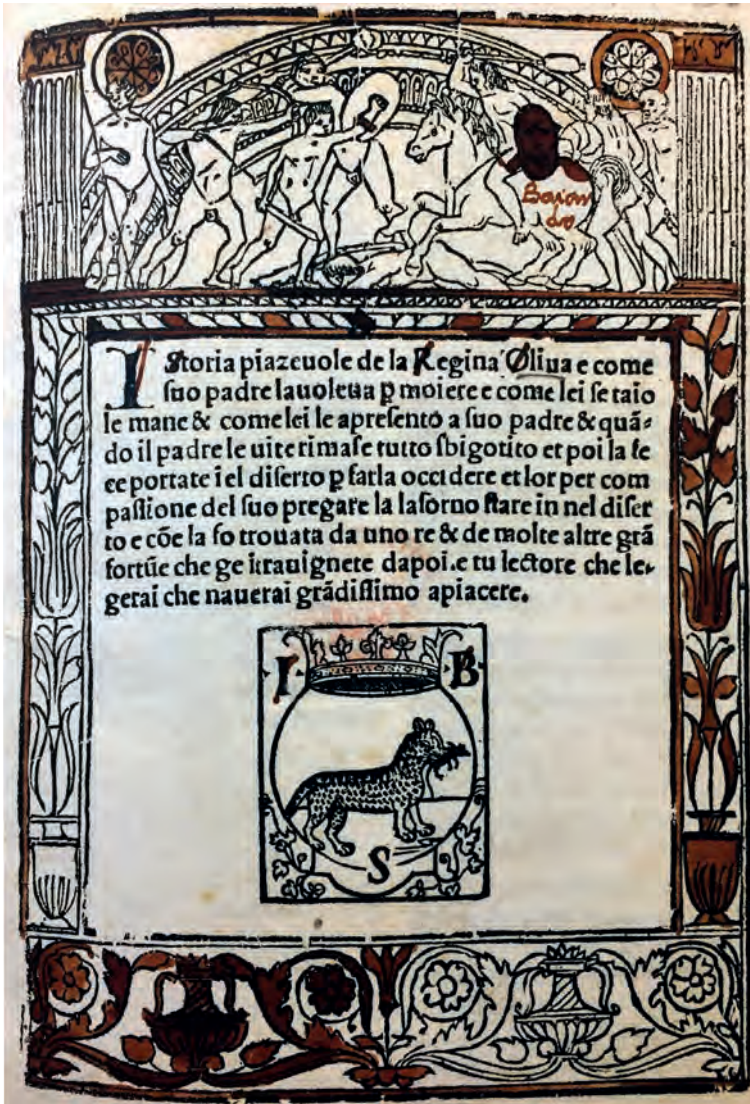 Baion
do
IStoria piazeuole de la Regina Oliua e come
suo padre lauoleua p̱ moiere e come lei se taio
le mane & come lei le apresento a suo padre & quã⸗
do il padre le uite rimase tutto sbigotito et poi la fe
ce portate i el diserto p̱ farla occidere et lor per com
passione del suo pregare la lasorno stare in nel diser
to e cõe la fo trouata da uno re & de molte altre grã
fortũe che ge itrauignete dapoi.e tu lectore che le⸗
gerai che nauerai grãdissimo apiacere.
I B
S